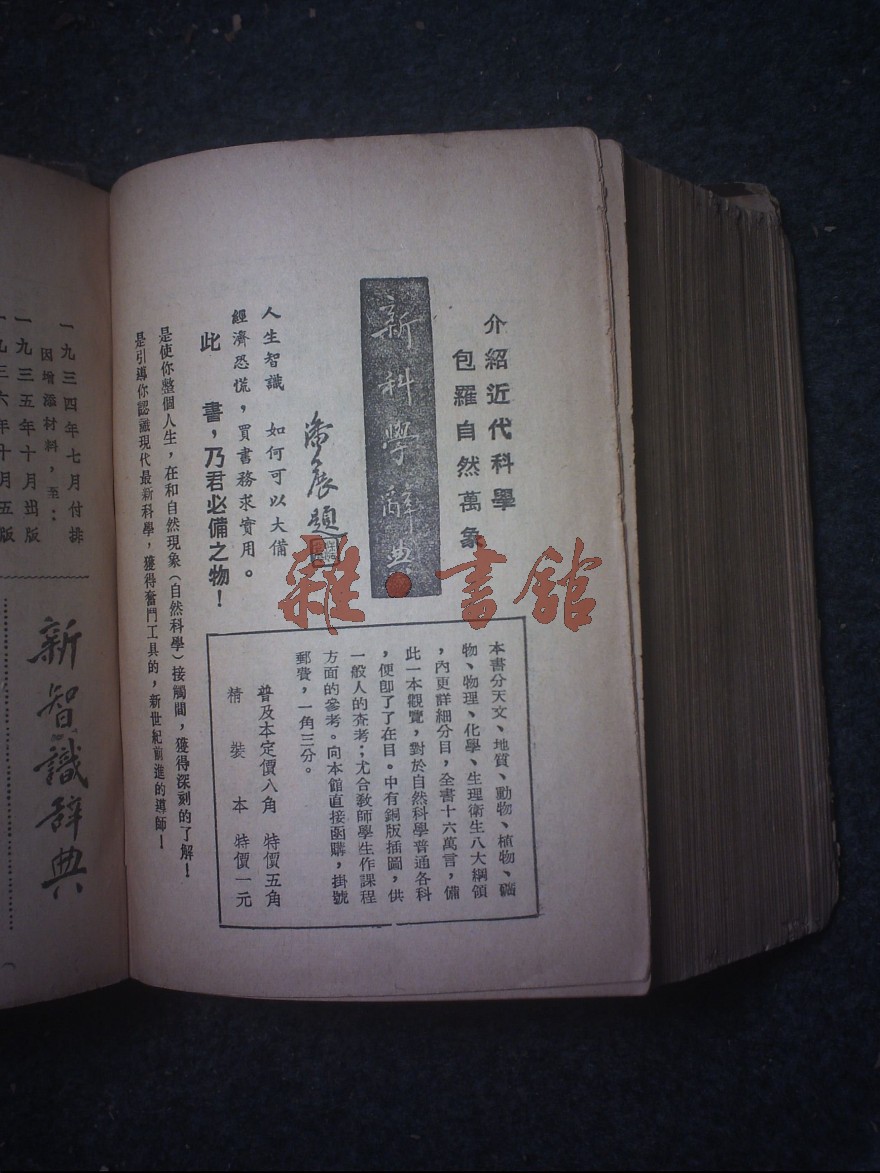 介紹近代科學
包羅自然萬象
新科學辭典
題
人生智識　如何可以大備
經濟恐慌，買書務求實用。
此書，乃君必備之物！
是使你整個人生，在和自然現象（自然科學）接觸間，獲得深刻的了解！
是引導你認識現代最新科學，獲得奮鬥工具的，新世紀前進的導師！
本書分天文、地質、動物、植物、礦
物、物理、化學、生理衛生八大綱領
，內更詳細分目，全書十六萬言，備
此一本觀覽，對於自然科學普通各科
，便卽了了在目。中有銅版插圖，供
一般人的查考；尤合教師學生作課程
方面的參考。向本館直接函購，掛號
郵費，一角三分。
普及本定價八角　特價五角
精裝本　特價一元
一九三四年七月付排
因增添材料，至：
一九三五年十月出版
一九三六年十月五版
新智識辭典
雜書館